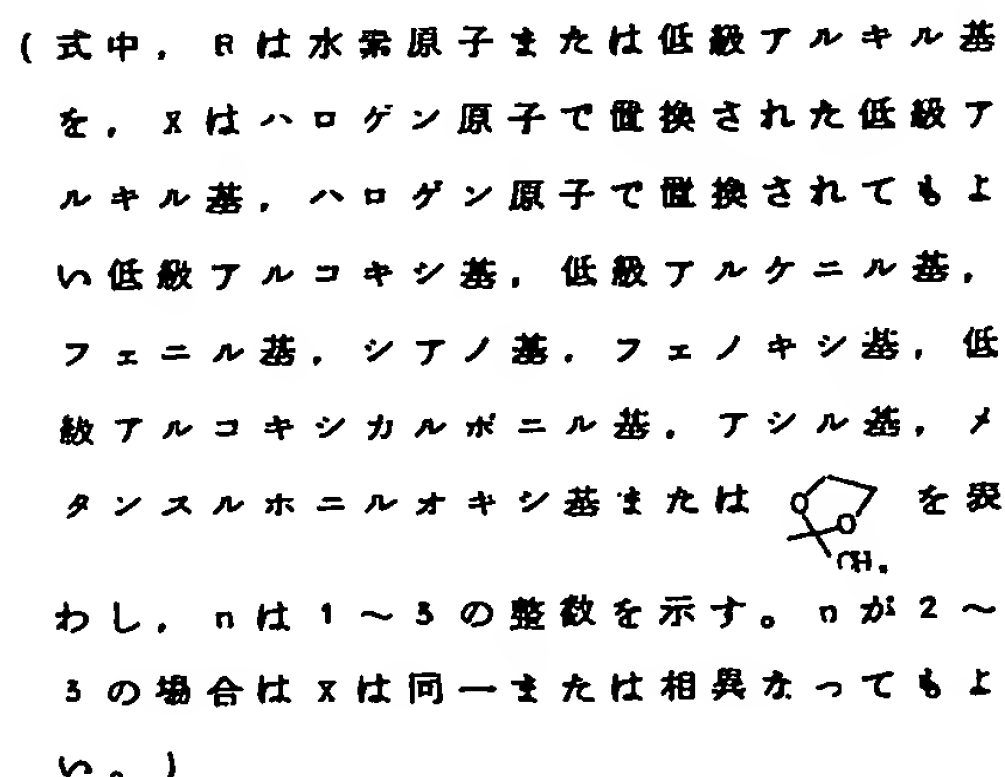 (式中,Rは水素原子または低級アルキル基
を,Xはハロゲン原子で置換された低級ア
ルキル基,ハロゲン原子で置換されてもよ
い低級アルコキシ基,低級アルケニル基,
フェニル基,シアノ基,フェノキシ基,低
級アルコキシカルボニル基,アシル基,メ
タンスルホニルオキシ基または O O CH3 を表
わし,nは1〜3の整数を示す。nが2〜
3の場合はXは同一または相異なってもよ
い。)